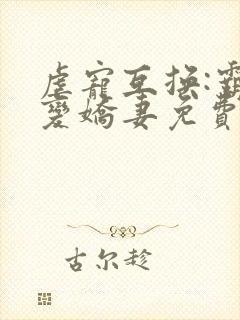 虐寵互換:霸
愛嬌妻免費
古尔趁